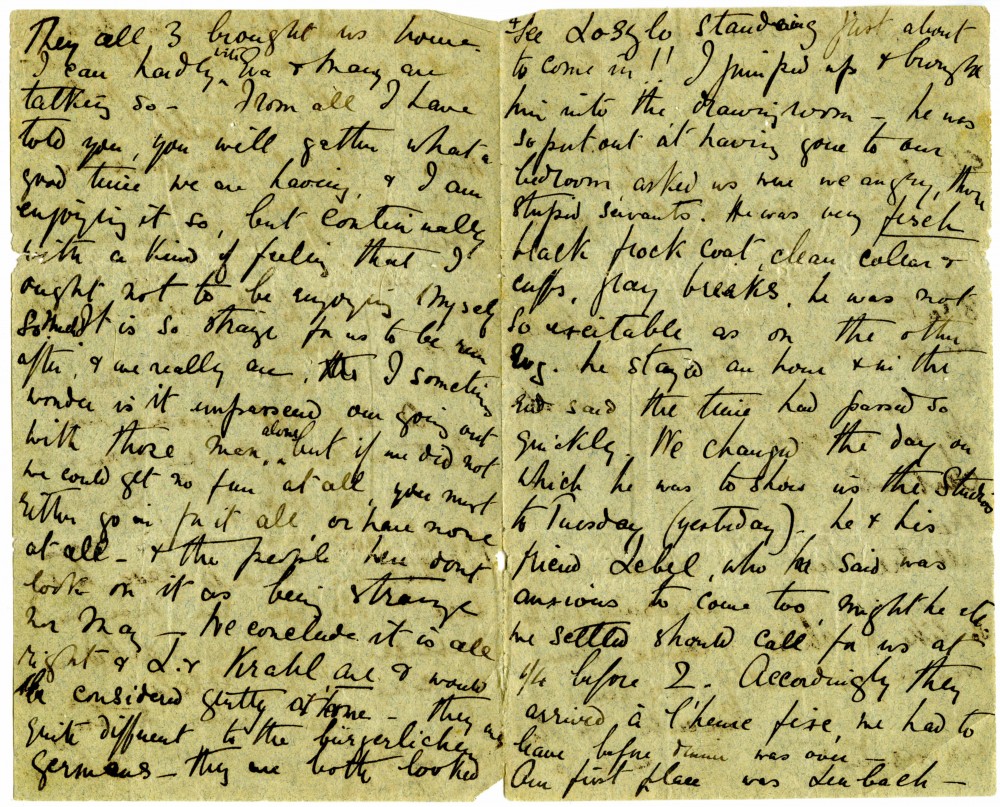 They all 3 brought us home.
I can hardly write Eva & Mary are
talking so – From all I have
told you, you will gather what a
good time we are having, & I am
enjoying it so, but continually
with a kind of feeling that I
ought not to be enjoying myself
so much It is so strange for us to be run
after, & we really are, tho I sometimes
wonder is it our going out
with those men alone, but if we did not
we could get no fun at all, you must
either go in for it all or have none
at all – & the people here don't
look on it as being strange
nor May – We conclude it is all
right & L. & Krahl are & would
be considered gentry at home – they are
quite different to the bürgerlichen
Germans – they are both looked
& see Laszlo standing just about
to come in!! I jumped up & brought
him into the drawingroom – he was
so put out at having gone to our
bedroom asked us were we angry, those
stupid servants. He was very fesch
black frock coat, clean collar &
cuffs, gray breaks, he was not
so excitable as on the other
evg. he stayed an hour & in the
end said the time had passed so
quickly. We changed the day on
which he was to show us the Studios
to Tuesday (yesterday). he & his
friend Lebel, who he said was
anxious to come too, might he etc.
we settled should call for us at
1/4 before 2. Accordingly they
arrived à l'heure fixe, we had to
leave before dinner was over –
Our first place was Lenbach –